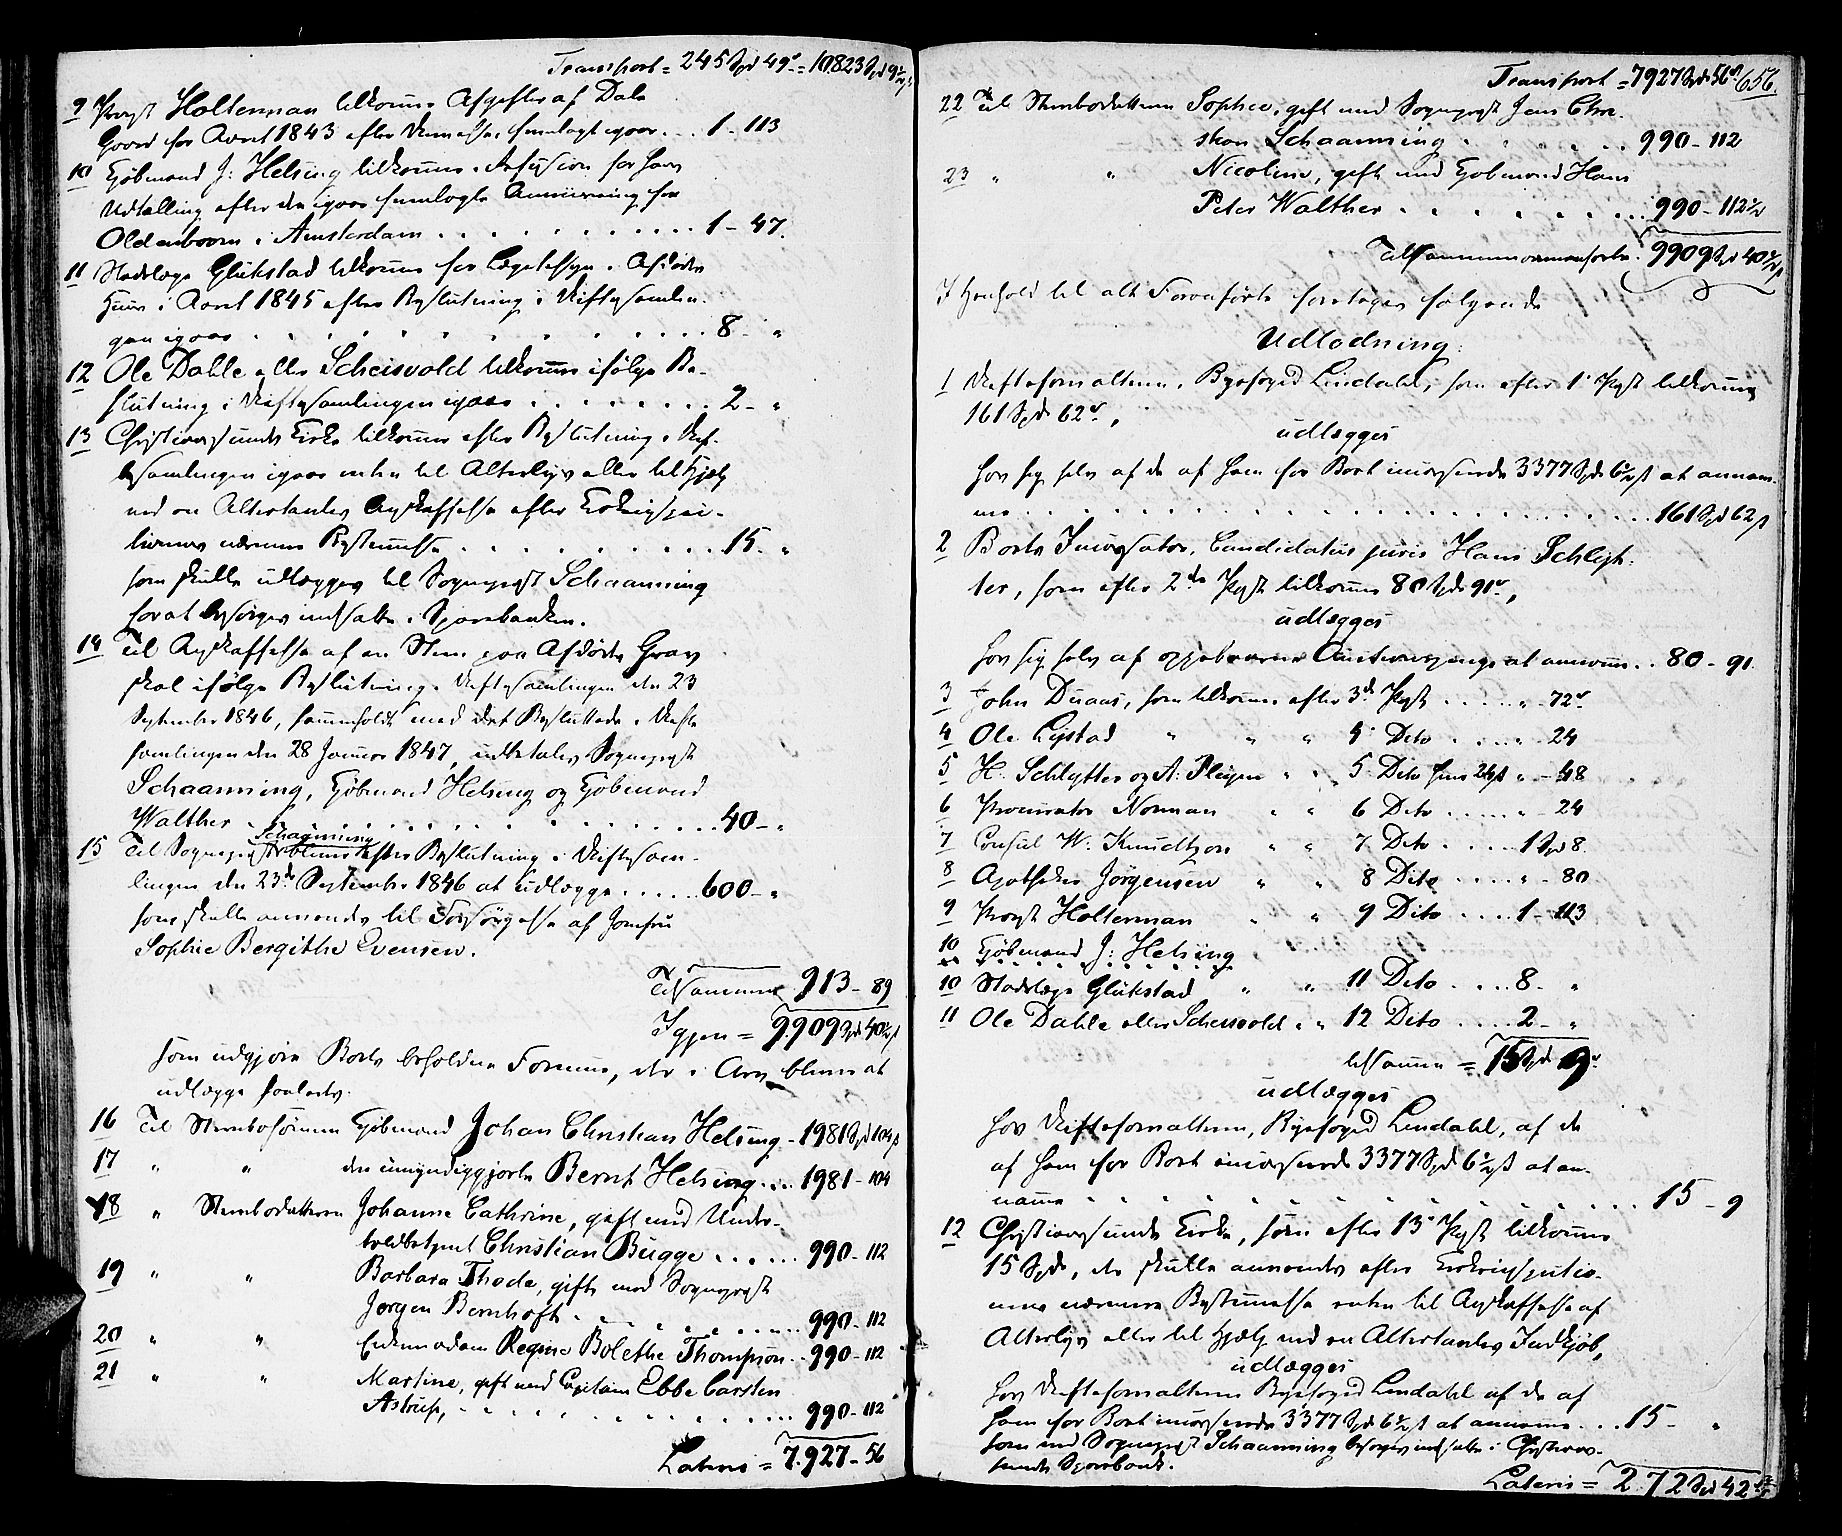 Transport = 245 Spd 49 s = 10,823 Spd 9½ s
9 Provst Holterman tilkommer Afgifter af Dale
Gaard for Aaret 1843 efter den fremlagte 1 - 113
10 Kjøbmand J: Helsing tilkommer Refusion for hans
Udtælling efter den igaar fremlagte Anviisning fra
Oldenboom i Amsterdam . . . 1 - 47.
11 Stadslæge Glükstad tilkommer for Lægetilsyn i Afdødes
Huus i Aaret 1845 efter Beslutning i Skiftesamlin-
gen igaar . . . 8 - "
12 Ole Dahle eller Scheisvold tilkommer ifølge Be-
slutning i Skiftesamlingen igaar . . . 2 - "
13 Christiansunds Kirke tilkommer efter Beslutning i Skif-
tesamlingen igaar enten til Alterlys eller til Hjelp
ved en Altertavles Anskaffelse efter Kirkeinspec-
tionens nærmere Bestemmelse . . . 15 - "
som skulle udlægges til Sogneprest Schaanning
for at besørges indsatte i Sparebanken.
14 Til Anskaffelse af en Steen paa Afdødes Grav
skal ifølge Beslutning i Skiftesamlingen den 23
September 1846, sammenholdt med det Besluttede i Skifte
samlingen den 28 Januar 1847, udbetales Sogneprest
Schaanning, Kjøbmand Helsing og Kjøbmand
Walther . . . 40 - "
Schaanning
15 Til Sogneprest bliver efter Beslutning i Skiftesam-
lingen den 23de September 1846 at udlægge . . . 600 - "
som skulle anvendes til Forsørgelse af Jomfru
Sophie Bergithe Evensen.
Tilsammen 913 - 89
Igjen = 9909 Spd 40½ s
som udgjøre Boets beholdne Formue, der i Arv bliver at
udlægge saaledes:
16 Til Stervbosønnen Kjøbmand Johan Christian Helsing - 1981 Spd 104 s
17 " " den umyndiggjorte Bernt Helsing . . . 1981 - 104
18 " Stervbodatteren Johanne Cathrine, gift med Under-
toldbetjent Christian Bugge . . . 990 - 112
19 " " Barbara Thode, gift med Sogneprest
Jørgen Bernhoft . . . 990 - 112
20 " " Enkemadam Regine Bolethe Thompson . . 990 - 112
21 " " Martine, gift med Capitain Ebbe Carsten
Astrup, . . . 990 - 112
Lateris = 7.927 - 56
Transport = 7927 Spd 56 s 656.
22 Til Stervbodatteren Sophie, gift med Sogneprest Jens Chri-
stian Schaanning . . . 990 - 112
23 " " Nicoline, gift med Kjøbmand Hans
Peter Walther . . . 990 - 112½
Tilsammen ovenanførte 9909 Spd 40½ s
I Henhold til alt Foranførte foretages følgende
Udlodning:
1 Skifteforvalteren, Byefoged Lindahl, som efter 1e Post tilkommer
161 Spd 62 s,
udlægges
hos sig selv af de af ham for Boet 3377 Spd 6½ s at annam-
me . . . 161 Spd 62 s
2 Boets Incasator, Candidatus juris Hans Schlyt-
ter, som efter 2den Post tilkommer 80 Spd 91 s,
udlægges
hos sig selv af oppebaarne Auctionspenge at annamme . . 80 - 91.
3 John Duaas, som tilkommer efter 3de Post . . . " - 72 s
4 Ole Lystad " " " 4 Dito . . . " - 24
5 H: Schlytter og A: Pleym " " 5 Dito hver 24 s " - 48
6 Procurator Norman " " 6 Dito . . . " - 24
7 Consul W: Knudtzon " " 7 Dito . . . 1 Spd 8
8 Apotheker Jörgensen " " 8 Dito . . . " - 80
9 Provst Holterman " " 9 Dito . . . 1 - 113
10 Kjøbmand J: Helsing
10 Stadslæge Glükstad " " 11 Dito . . . 8 - "
11 Ole Dahle eller Scheisvold " " 12 Dito . . . 2 - "
tilsammen = 15 Spd 9 s
udlægges
hos Skifteforvalteren, Byefoged Lindahl, af de
af ham for Boet 3377 Spd 6½ s at an-
namme . . . 15 - 9
12 Christiansunds Kirke, som efter 13e Post tilkommer
15 Spd, der skulle anvendes efter Kirkeinspectio-
nens nærmere Bestemmelse enten til Anskaffelse af
Alterlys eller til Hjelp ved en Altertavles Indkjøb,
udlægges
hos Skifteforvalteren Byefoged Lindahl af de af
ham for Boet 3377 Spd 6½ s at annamme . . . 15 - "
som ved Sogneprest Schaanning besørges indsatte i Christian-
sunds Sparebank.
Lateris = 272 Spd 42 s